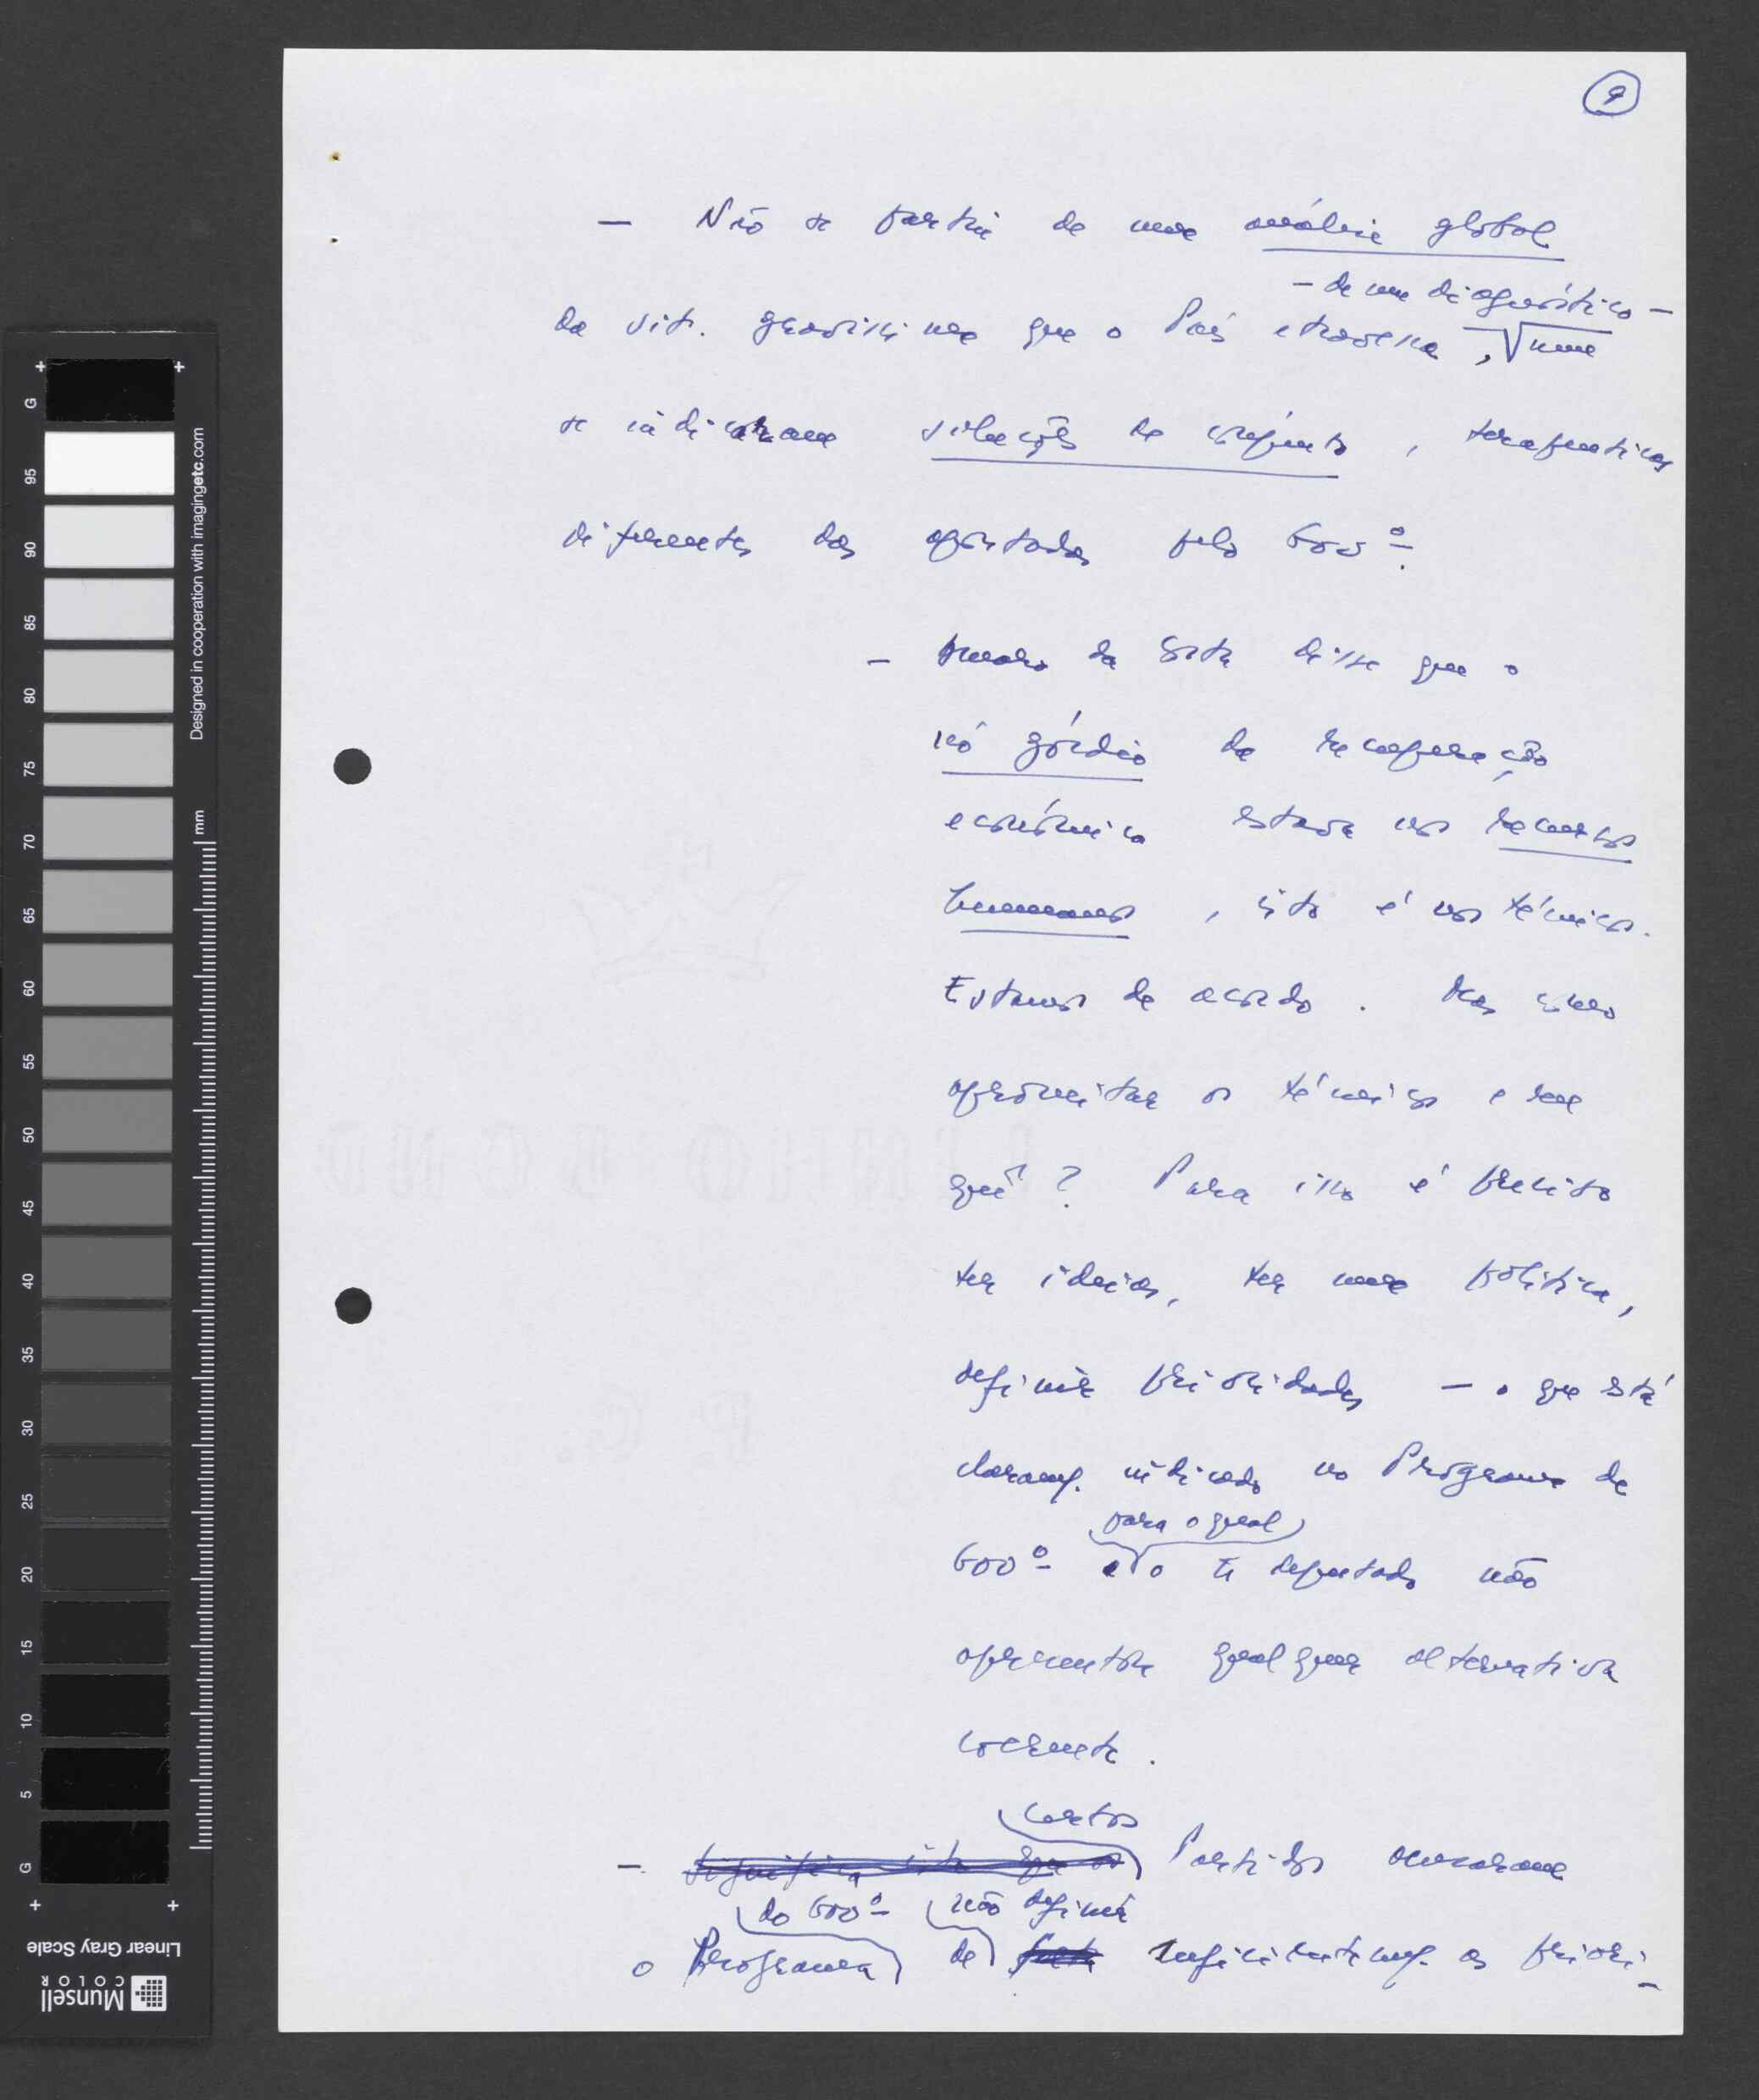 9
— Não se partiu de uma análise global
— de um diagnóstico —
da sit. gravíssima que o País atravessa, nem
se indicaram soluções de conjunto, terapeuticas
diferentes das apontadas pelo Govº.
— da Costa disse que o
nó górdio da recuperação
económica estava nos recursos
humanos, isto é nos técnicos.
Estamos de acordo. Mas como
aproveitar os técnicos e em
quê? Para isso é preciso
ter ideias, ter uma política,
definir prioridades — o que está
claram. indicado no Programa do
para o qual
Govº e o Sr deputado não
apresentou qualquer alternativa
coerente.
certos
— Significa isto que os Partidos acusaram
do Govº não definir
o Programa de falta suficientem. as priori-
Designed in cooperation with imagingetc.com
mm
G
95
90
85
80
75
70
65
60
55
50
45
40
35
30
25
20
15
10
5
G
Linear Gray Scale
Munsell
COLOR